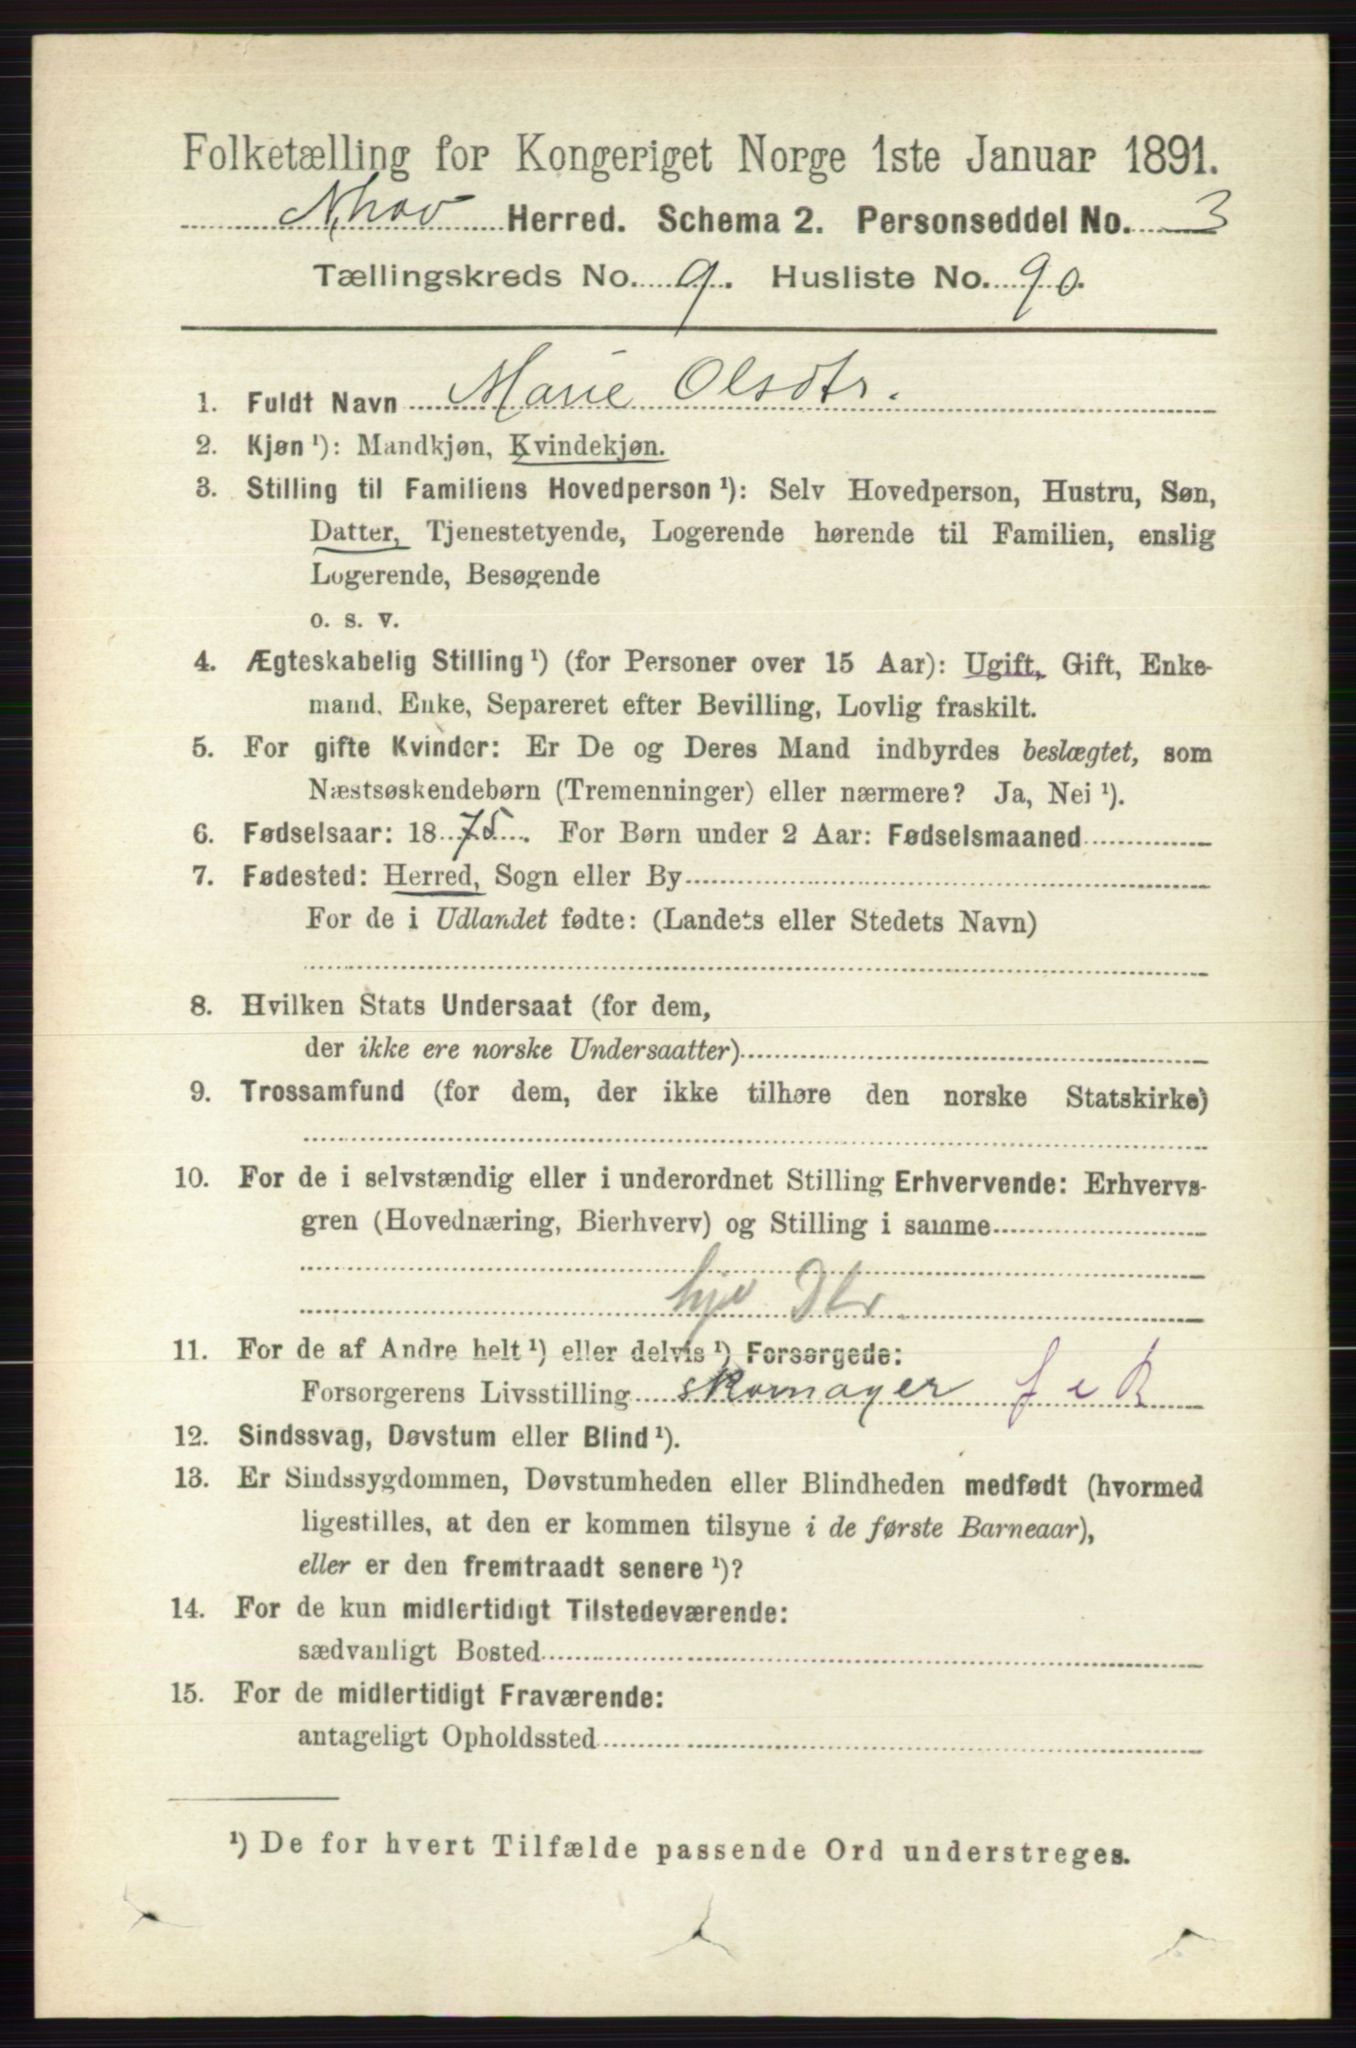 Folketælling for Kongeriget Norge 1ste Januar 1891.
Herred. Schema 2. Personseddel No. 3
Tællingskreds No. 9. Husliste No. 90.
1. Fuldt Navn Marie Olsdtr.
2. Kjøn ¹): Mandkjøn, Kvindekjøn.
3. Stilling til Familiens Hovedperson ¹): Selv Hovedperson, Hustru, Søn,
Datter, Tjenestetyende, Logerende hørende til Familien, enslig
Logerende, Besøgende
o. s. v.
4. Ægteskabelig Stilling ¹) (for Personer over 15 Aar): Ugift, Gift, Enke-
mand, Enke, Separeret efter Bevilling, Lovlig fraskilt.
5. For gifte Kvinder: Er De og Deres Mand indbyrdes beslægtet, som
Næstsøskendebørn (Tremenninger) eller nærmere? Ja, Nei ¹).
6. Fødselsaar: 1875. For Børn under 2 Aar: Fødselsmaaned
7. Fødested: Herred, Sogn eller By
For de i Udlandet fødte: (Landets eller Stedets Navn)
8. Hvilken Stats Undersaat (for dem,
der ikke ere norske Undersaatter)
9. Trossamfund (for dem, der ikke tilhøre den norske Statskirke)
10. For de i selvstændig eller i underordnet Stilling Erhvervende: Erhvervs-
gren (Hovednæring, Bierhverv) og Stilling i samme
11. For de af Andre helt ¹) eller delvis ¹) Forsørgede:
Forsørgerens Livsstilling skomager
12. Sindssvag, Døvstum eller Blind ¹).
13. Er Sindssygdommen, Døvstumheden eller Blindheden medfødt (hvormed
ligestilles, at den er kommen tilsyne i de første Barneaar),
eller er den fremtraadt senere ¹)?
14. For de kun midlertidigt Tilstedeværende:
sædvanligt Bosted
15. For de midlertidigt Fraværende:
antageligt Opholdssted
¹) De for hvert Tilfælde passende Ord understreges.